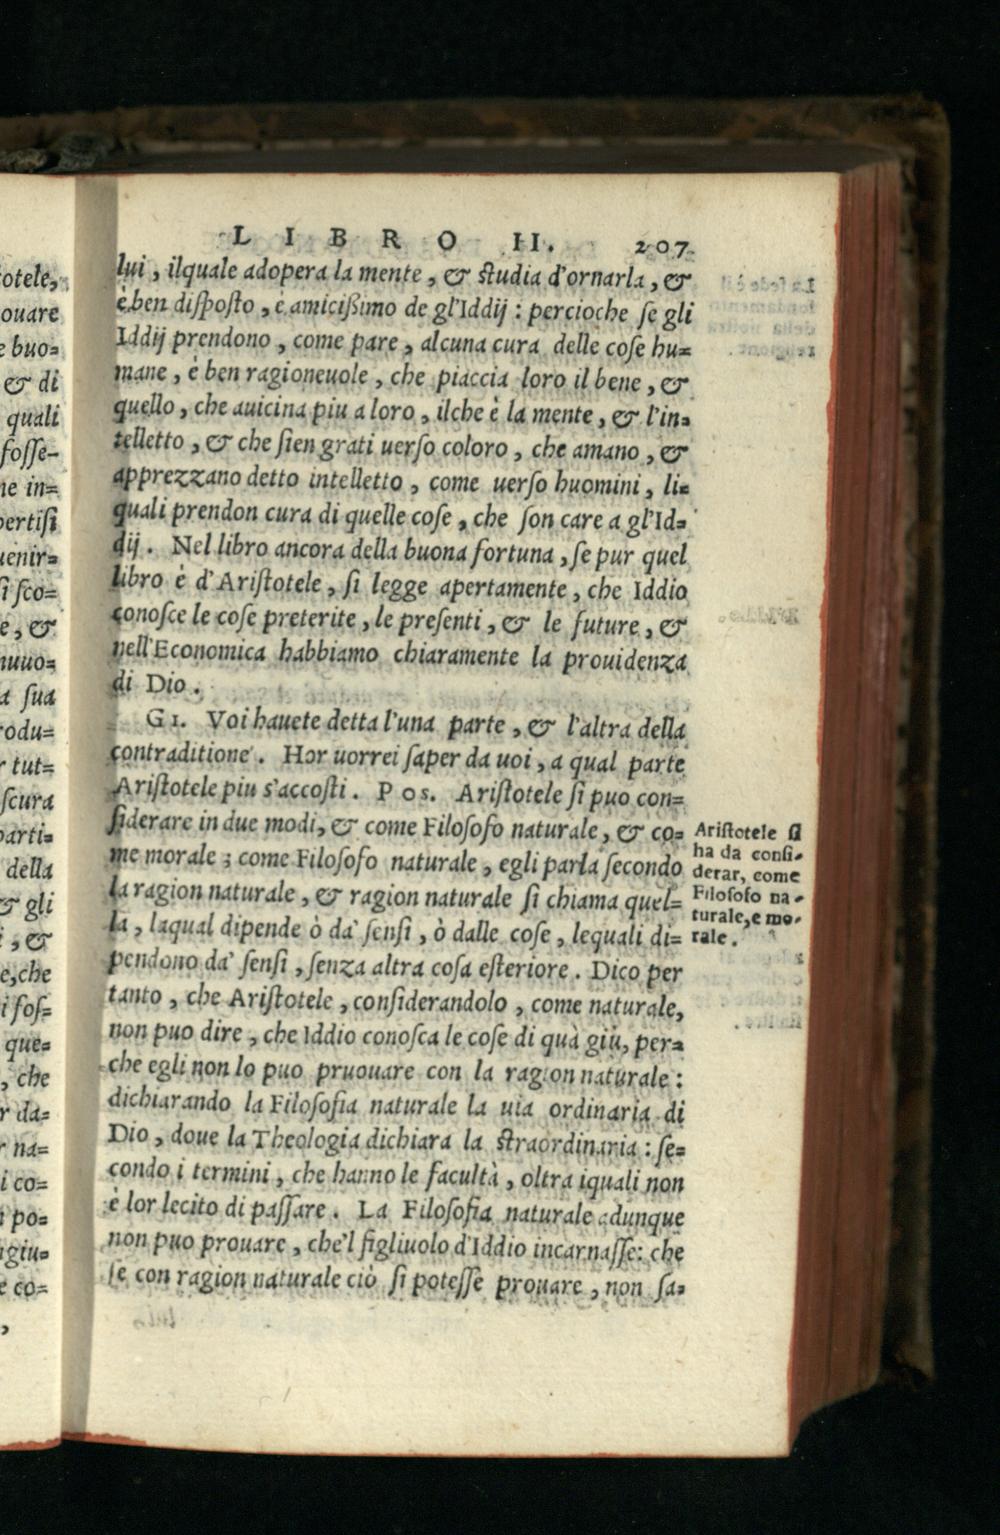 LIBRO II. 207
lui, ilquale adopera la mente, & ſtudia d'ornarla, &
è ben diſpoſto, e amicißimo de gl'Iddij : percioche ſe gli
Iddij prendono, come pare, alcuna cura delle coſe hu=
mane, è ben ragioneuole, che piaccia loro il bene, &
quello, che auicina piu a loro, ilche è la mente, & l'in=
telletto, & che ſien grati uerſo coloro, che amano, &
apprezzano detto intelletto, come uerſo huomini, li=
quali prendon cura di quelle coſe, che ſon care a gl'Id=
dij. Nel libro ancora della buona fortuna, ſe pur quel
libro è d'Ariſtotele, ſi legge apertamente, che Iddio
conoſce le coſe preterite, le preſenti, & le future, &
nell'Economica habbiamo chiaramente la prouidenza
di Dio.
GI. Voi hauete detta l'una parte, & l'altra della
contraditione. Hor uorrei ſaper da uoi, a qual parte
Ariſtotele piu s'accoſti. POS. Ariſtotele ſi puo con=
ſiderare in due modi, & come Filoſofo naturale, & co=
me morale ; come Filoſofo naturale, egli parla ſecondo
la ragion naturale, & ragion naturale ſi chiama quel=
la, laqual dipende ò da' ſenſi, ò dalle coſe, lequali di=
pendono da' ſenſi, ſenza altra coſa eſteriore. Dico per
tanto, che Ariſtotele, conſiderandolo, come naturale,
non puo dire, che Iddio conoſca le coſe di quà giù, per=
che egli non lo puo pruouare con la ragion naturale :
dichiarando la Filoſofia naturale la uia ordinaria di
Dio, doue la Theologia dichiara la ſtraordinaria : ſe=
condo i termini, che hanno le facultà, oltra iquali non
è lor lecito di paſſare. La Filoſofia naturale adunque
non puo prouare, che'l figliuolo d'Iddio incarnaſſe: che
ſe con ragion naturale ciò ſi poteſſe prouare, non ſa=
Ariſtotele ſi
ha da conſi-
derar, come
Filoſofo na-
turale, e mo-
rale.
otele,
ouare
e buo=
& di
quali
foſſe-
ne in=
pertiſi
uenir=
ſi ſco=
e, &
nuuo=
a ſua
rodu=
r tut=
ſcura
parti=
della
& gli
i, &
e, che
i foſ=
que=
, che
r da=
r na=
i co=
i po=
giu=
e co=